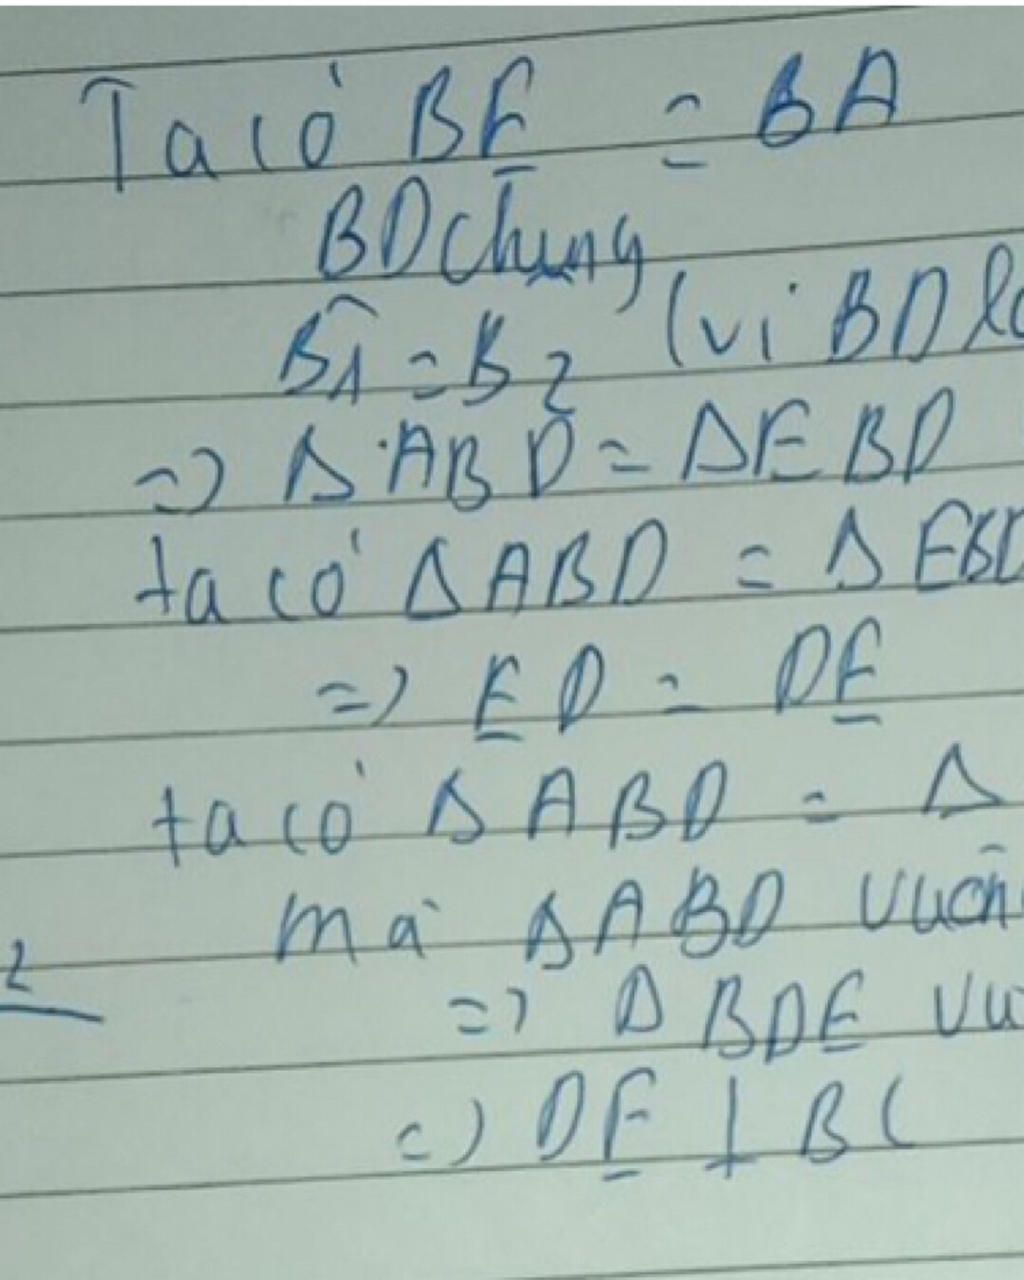 Ta có BE = BA
BD chung
B̂1 = B2 (vì BD
=> Δ ABD = ΔEBD
ta có ΔABD = Δ EBD
=> ED = DE
ta có Δ ABD = Δ
mà Δ ABD vuôn
2
=> Δ BDE vu
=> DE ⊥ BC